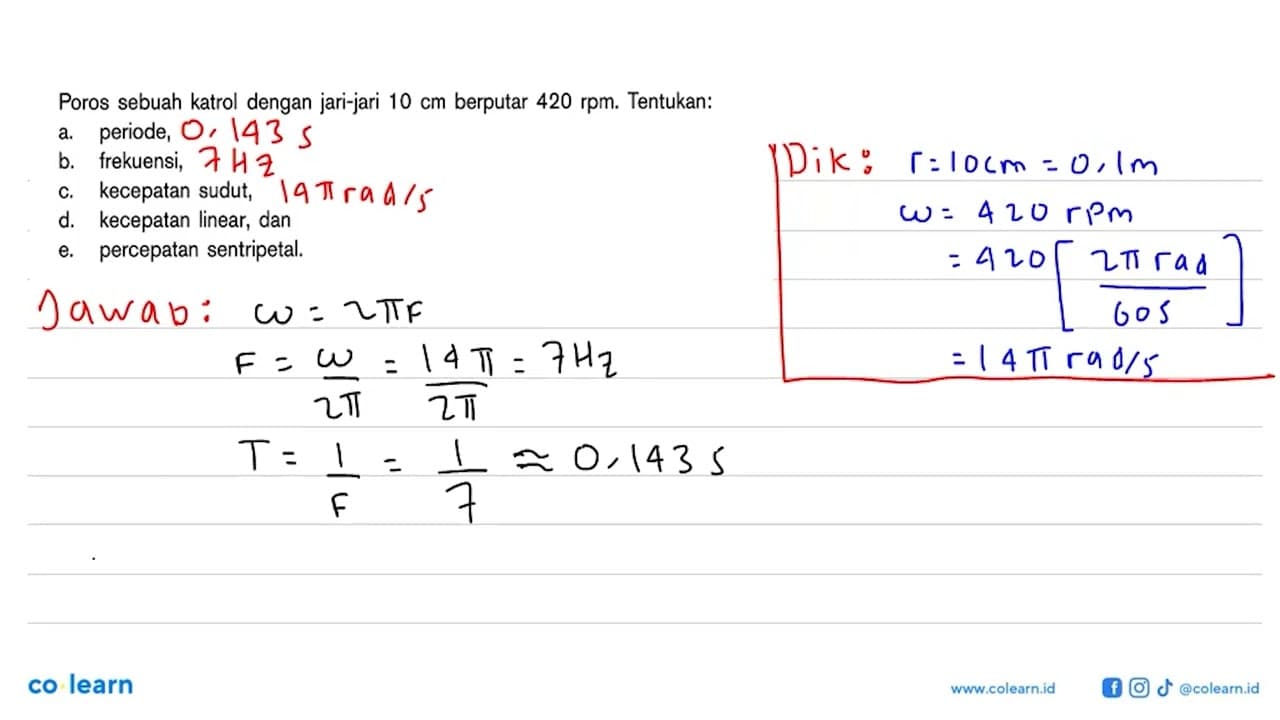 Poros sebuah katrol dengan jari-jari 10 cm berputar 420 rpm. Tentukan:
a. periode, 0,143 s
b. frekuensi, 7 Hz
c. kecepatan sudut, 14π rad/s
d. kecepatan linear, dan
e. percepatan sentripetal.
Dik: r = 10 cm = 0,1 m
ω = 420 rpm
= 420 [2π rad / 60 s]
= 14π rad/s
Jawab: ω = 2πF
F = ω/2π = 14π/2π = 7 Hz
T = 1/F = 1/7 ≈ 0,143 s
co·learn
www.colearn.id
@colearn.id